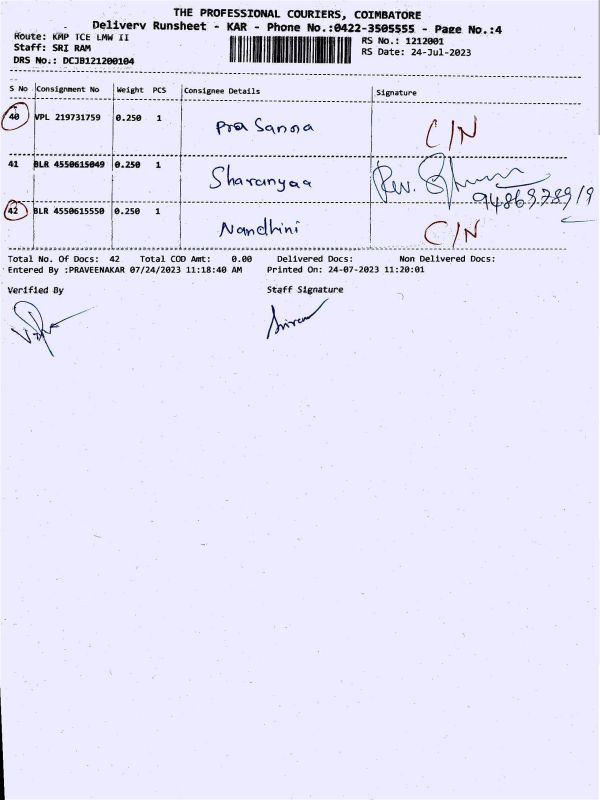 THE PROFESSIONAL COURIERS, COIMBATORE
Delivery Runsheet - KAR - Phone No.:0422-3505555 - Page No.:4
Route: KMP TCE LMW II
RS No.: 1212001
Staff: SRI RAM
RS Date: 24-Jul-2023
DRS No.: DCJB121200104
S No Consignment No Weight PCS Consignee Details Signature
40 VPL 219731759 0.250 1 Prasanna C/N
41 BLR 4550615049 0.250 1 Sharanyaa
42 BLR 4550615550 0.250 1 Nandhini C/N
Total No. Of Docs: 42 Total COD Amt: 0.00 Delivered Docs: Non Delivered Docs:
Entered By :PRAVEENAKAR 07/24/2023 11:18:40 AM Printed On: 24-07-2023 11:20:01
Verified By Staff Signature
Sriram